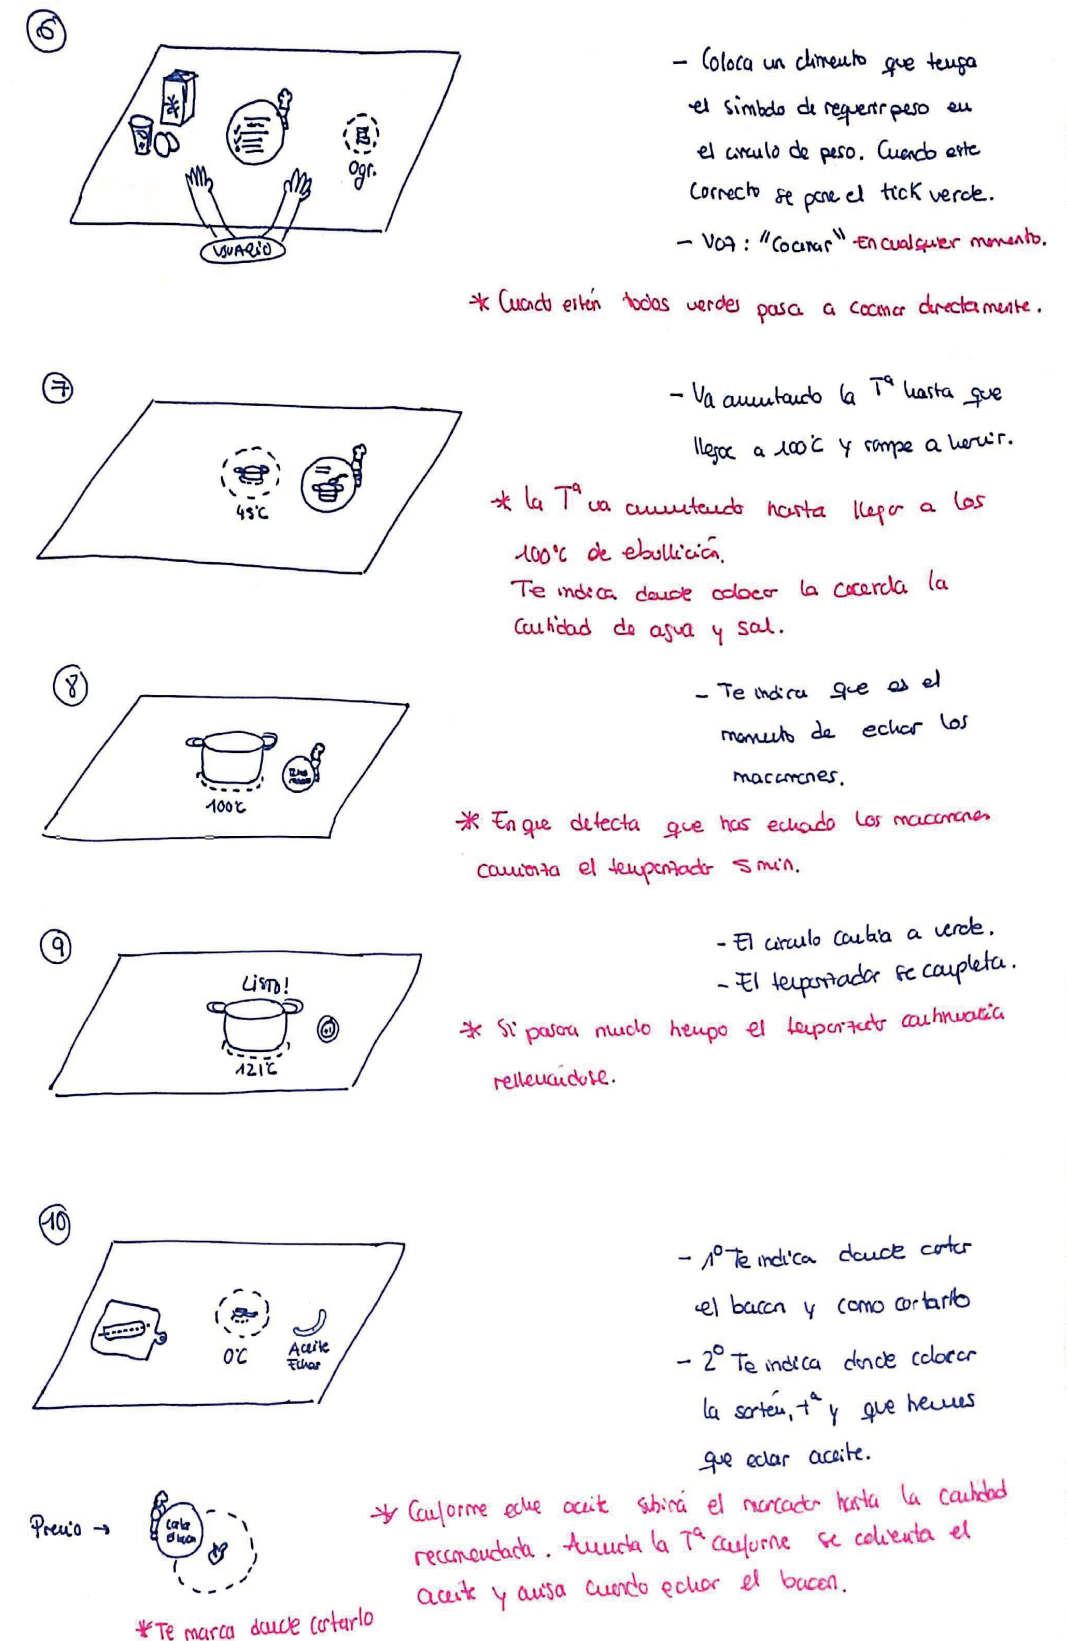 6
- Coloca un alimento que tenga
el símbolo de requerir peso en
el círculo de peso. Cuando esté
correcto se pone el tick verde.
- Voz: "Cocinar" En cualquier momento.
0gr.
USUARIO
* Cuando estén todos verdes pasa a cocinar directamente.
7
- Va aumentando la Tª hasta que
llegue a 100°C y rompe a hervir.
45°C
* la Tª va aumentando hasta llegar a los
100°C de ebullición.
Te indica donde colocar la cacerola la
cantidad de agua y sal.
8
- Te indica que es el
momento de echar los
macarrones.
100°C
* En que detecta que has echado los macarrones
comienza el temporizador 5 min.
9
- El círculo cambia a verde.
- El temporizador se completa.
LISTO!
121°C
* Si pasara mucho tiempo el temporizador continuaría
rellenándose.
10
- 1º Te indica donde cortar
el bacon y como cortarlo
- 2º Te indica donde colocar
la sartén, tª y que tienes
que echar aceite.
0°C
Aceite
Echar
Previo →
Corta
el bacon
* Conforme eche aceite subirá el marcador hasta la cantidad
recomendada. Aumenta la Tª conforme se calienta el
aceite y avisa cuando echar el bacon.
* Te marca donde cortarlo